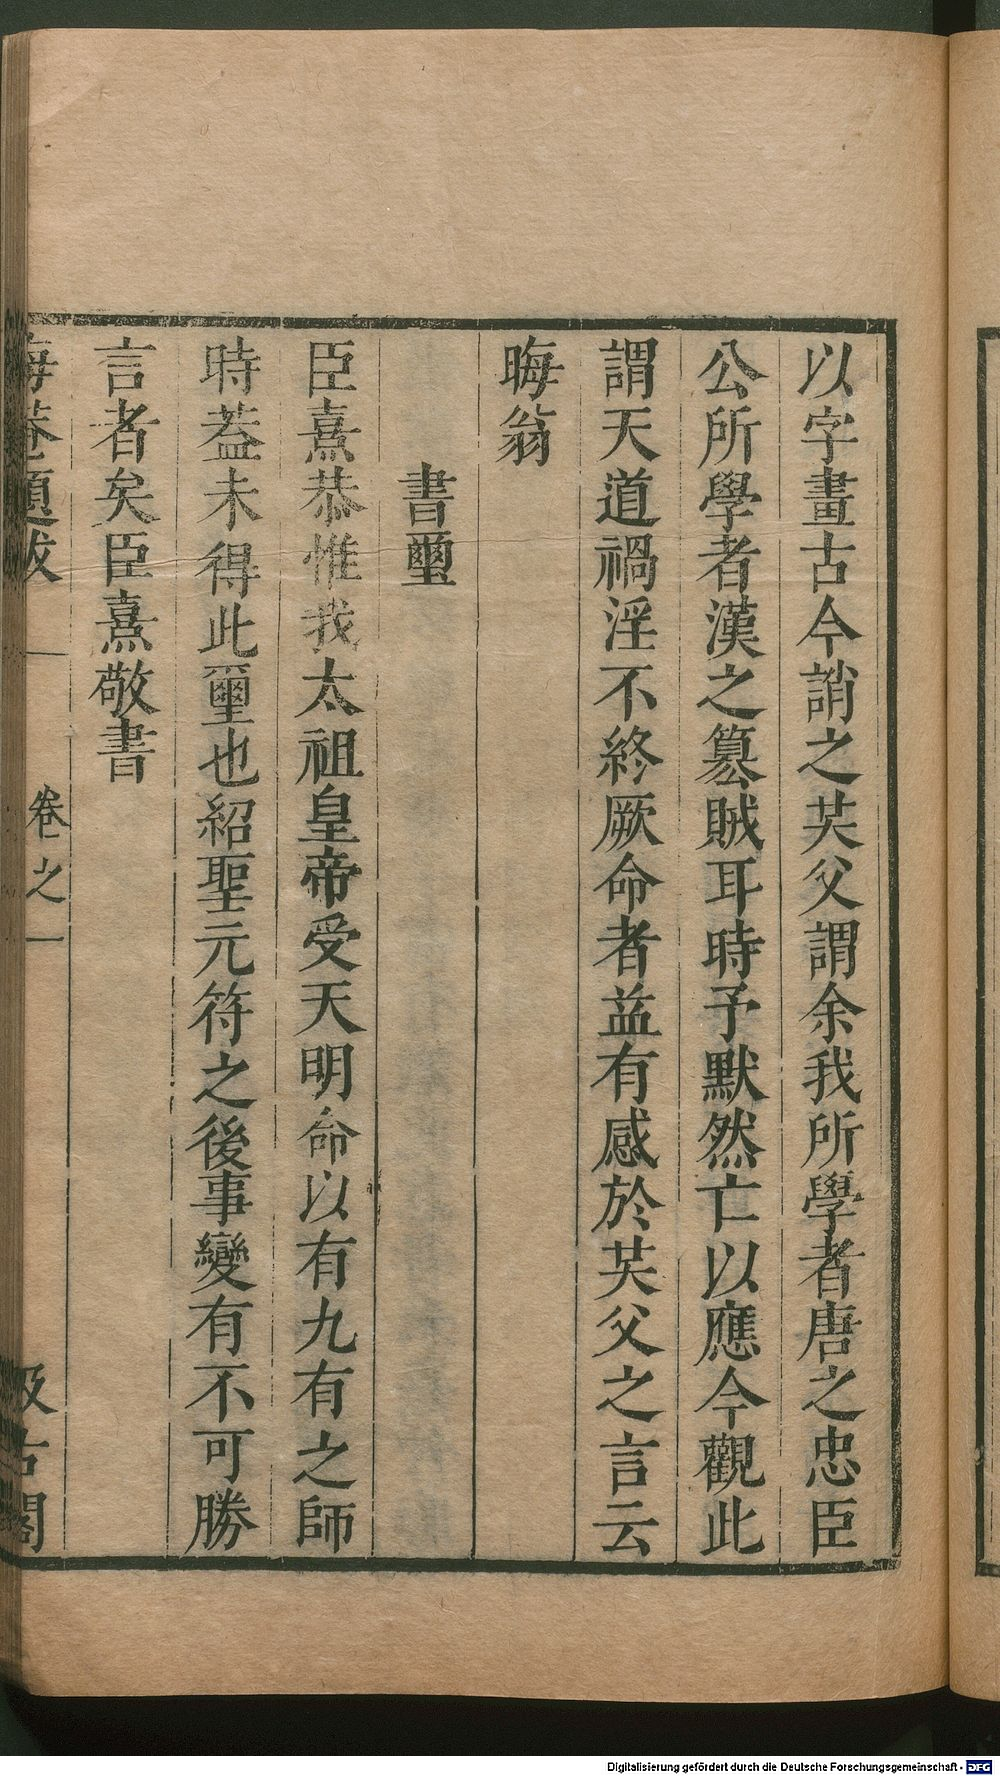 以字畫古今誚之共父謂余我所學者唐之忠臣
公所學者漢之篡賊耳時予默然亡以應今觀此
謂天道禍淫不終厥命者益有感於共父之言云
晦翁
書璽
臣熹恭惟我太祖皇帝受天明命以有九有之師
時葢未得此璽也紹聖元符之後事變有不可勝
言者矣臣熹敬書
晦菴題跋
卷之一
汲古閣
Digitalisierung gefördert durch die Deutsche Forschungsgemeinschaft - DFG